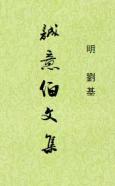 明 劉基
誠意伯文集